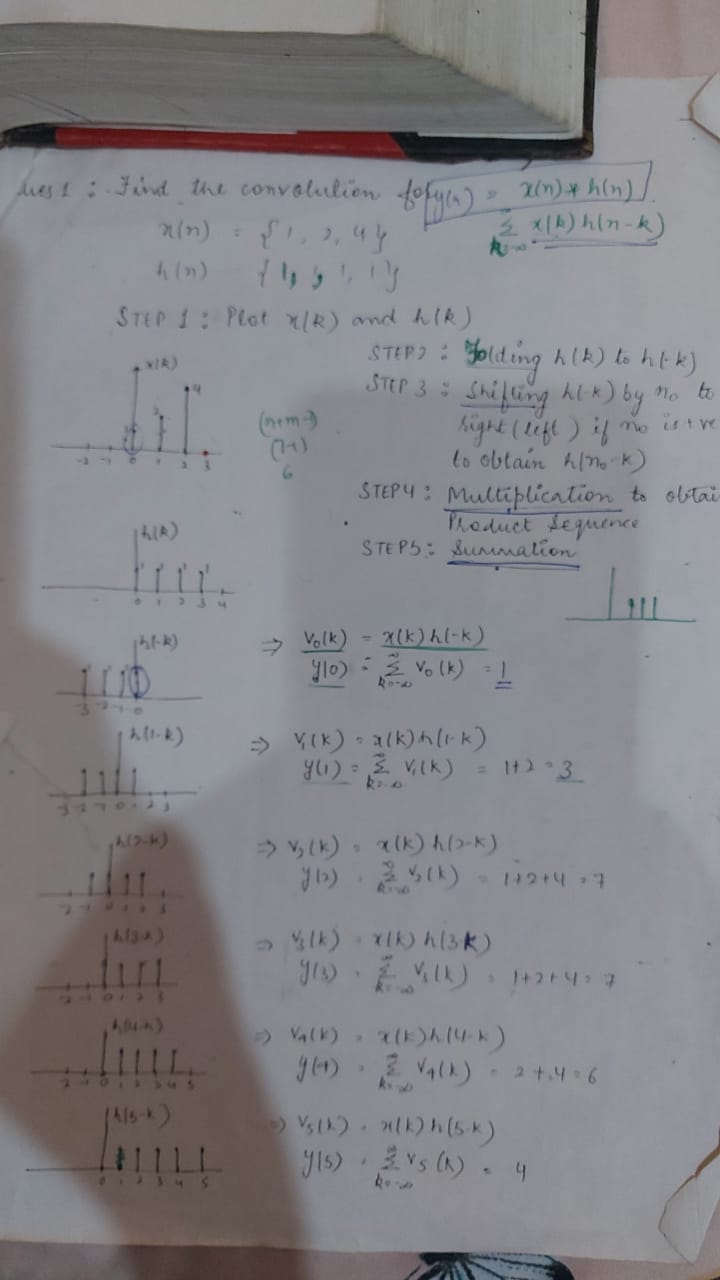 Ques 1 : Find the convolution for y(n) = x(n) * h(n)
Σ x(k) h(n-k)
k=-∞
x(n) = {1, 2, 4}
h(n) {1, 1, 1, 1}
STEP 1 : Plot x(k) and h(k)
STEP 2 : Folding h(k) to h(-k)
STEP 3 : Shifting h(-k) by no to
right (left) if no is +ve
to obtain h(no-k)
STEP 4 : Multiplication to obtai
Product Sequence
STEP 5 : Summation
x(k)
2
4
-2 -1 0 1 2 3
(n+m-1)
(7-1)
6
h(k)
1 1 1 1
0 1 2 3 4
h(-k)
-3 -2 -1 0
⇒ V₀(k) = x(k) h(-k)
y(0) = Σ V₀(k) = 1
k=-∞
h(1-k)
-3 -2 -1 0 1 2 3
⇒ V₁(k) = x(k) h(1-k)
y(1) = Σ V₁(k) = 1+2 = 3
k=-∞
h(2-k)
-2 -1 0 1 2 3
⇒ V₂(k) = x(k) h(2-k)
y(2) = Σ V₂(k) = 1+2+4 = 7
k=-∞
h(3-k)
-2 -1 0 1 2 3
⇒ V₃(k) = x(k) h(3-k)
y(3) = Σ V₃(k) = 1+2+4 = 7
k=-∞
h(4-k)
-2 -1 0 1 2 3 4 5
⇒ V₄(k) = x(k) h(4-k)
y(4) = Σ V₄(k) = 2+4 = 6
k=-∞
h(5-k)
0 1 2 3 4 5
⇒ V₅(k) = x(k) h(5-k)
y(5) = Σ V₅(k) = 4
k=-∞